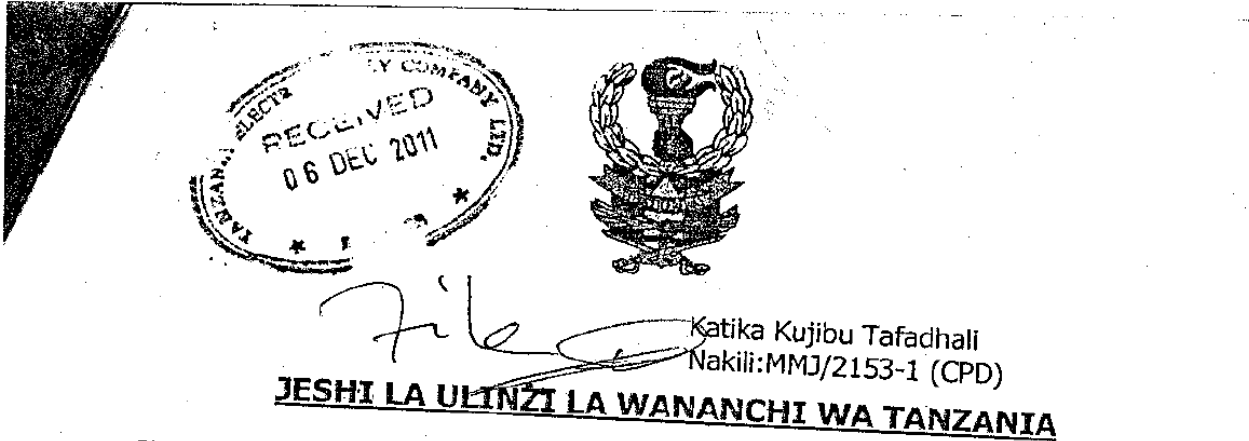 COMPANY LTD.
RECEIVED
06 DEC 2011
File
Katika Kujibu Tafadhali
Nakili:MMJ/2153-1 (CPD)
JESHI LA ULINZI LA WANANCHI WA TANZANIA